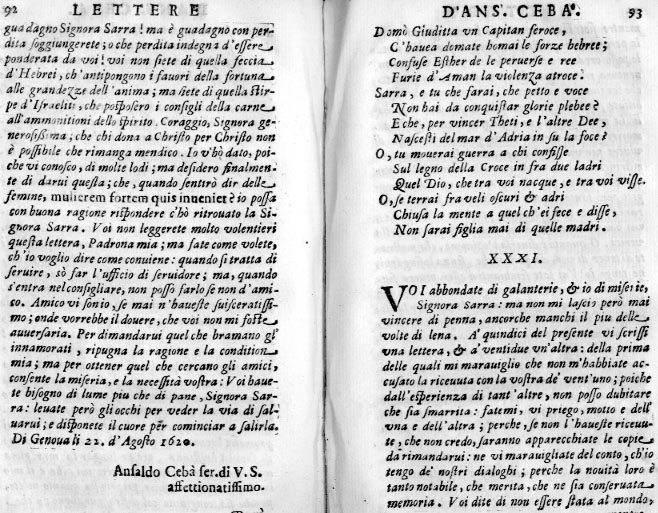 92 LETTERE
guadagno Signora Sarra! ma è guadagno con per-
dita soggiungerete; o che perdita indegna d'essere
ponderata da voi! voi non siete di quella feccia
d'Hebrei, ch'antipongono i fauori della fortuna
alle grandezze dell'anima; ma siete di quella stir-
pe d'Israeliti, che posposero i consigli della carne
all'ammonitioni dello spirito. Coraggio, Signora ge-
nerosissima; che chi dona a Christo per Christo non
è possibile che rimanga mendico. Io v'hò dato, poi-
che vi conosco, di molte lodi; ma desidero finalmen-
te di darui questa; che, quando sentirò dir delle
femine, mulierem fortem quis inueniet? io possa
con buona ragione rispondere c'hò ritrouato la Si-
gnora Sarra. Voi non leggerete molto volentieri
questa lettera, Padrona mia; ma fate come volete,
ch'io voglio dire come conuiene: quando si tratta di
seruire, sò far l'ufficio di seruidore; ma, quando
s'entra nel consigliare, non posso farlo se non d'ami-
co. Amico vi sonio, se mai n'haueste suisceratissi-
mo; onde vorrebbe il douere, che voi non mi foste
auuersaria. Per dimandarui quel che bramano gl'
innamorati, ripugna la ragione e la conditione
mia; ma per ottener quel che cercano gli amici,
consente la miseria, e la necessità vostra: Voi haue-
te bisogno di lume piu che di pane, Signora Sar-
ra: leuate però gli occhi per veder la via di sal-
uarui; e disponete il cuore per cominciar a salirla.
Di Genoua li 22. d'Agosto 1620.
Ansaldo Cebà ser. di V. S.
affettionatissimo.
D'ANS. CEBA. 93
Domò Giuditta vn Capitan feroce,
C'hauea domate homai le forze hebree;
Confuse Esther de le peruerse e ree
Furie d'Aman la violenza atroce.
Sarra, e tu che farai, che petto e voce
Non hai da conquistar glorie plebee?
E che, per vincer Theti, e l'altre Dee,
Nascesti del mar d'Adria in su la foce?
O, tu mouerai guerra a chi confisse
Sul legno della Croce in fra due ladri
Quel Dio, che tra voi nacque, e tra voi visse.
O, se terrai fra veli oscuri & adri
Chiusa la mente a quel ch'ei fece e disse,
Non sarai figlia mai di quelle madri.
XXXI.
VOI abbondate di galanterie, & io di miserie,
Signora Sarra: ma non mi lascio però mai
vincere di penna, ancorche manchi il piu delle
volte di lena. A' quindici del presente vi scrissi
vna lettera, & a' ventidue vn'altra: della prima
delle quali mi marauiglio che non m'habbiate ac-
cusato la riceuuta con la vostra de' vent'uno; poiche
dall'esperienza di tant'altre, non posso dubitare
che sia smarrita: fatemi, vi priego, motto e dell'
vna e dell'altra; perche, se non l'haueste riceuu-
te, che non credo, saranno apparecchiate le copie
da rimandarui: ne vi marauigliate del conto, ch'io
tengo de' nostri dialoghi; perche la nouità loro è
tanto notabile, che merita, che ne sia conseruata
memoria. Voi dite di non essere stata al mondo,